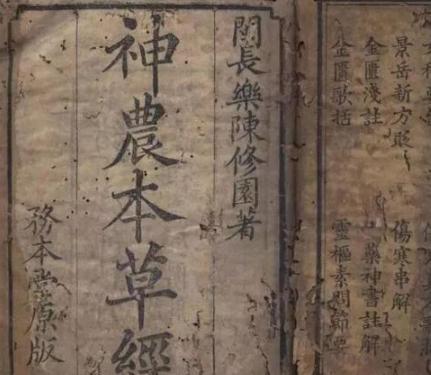 景岳新方砭
金匱淺註
金匱歌括
傷寒串解
十藥神書註解
靈樞素問節要
閩長樂陳修園著
神農本草經
務本堂原版